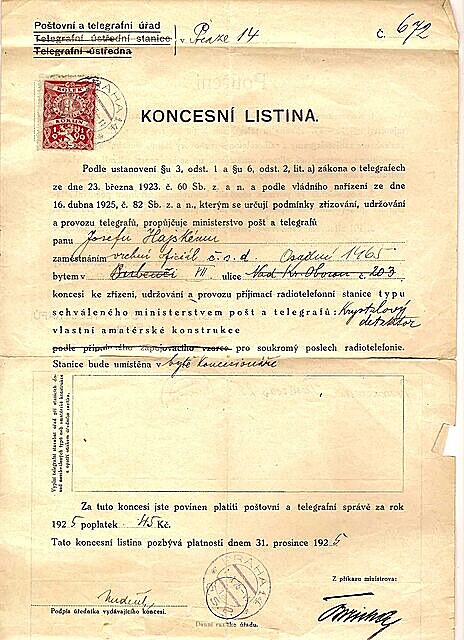 Poštovní a telegrafní úřad
Telegrafní ústřední stanice v Praze 14 č. 672
Telegrafní ústředna
KOLEK
KORUN
PRAHA
KONCESNÍ LISTINA.
Podle ustanovení §u 3, odst. 1 a §u 6, odst. 2, lit. a) zákona o telegrafech
ze dne 23. března 1923. č. 60 Sb. z. a n. a podle vládního nařízení ze dne
16. dubna 1925, č. 82 Sb. z. a n., kterým se určují podmínky zřizování, udržování
a provozu telegrafů, propůjčuje ministerstvo pošt a telegrafů
panu Josefu Hajskému
zaměstnáním vrchní oficiál č. s. d. Osadní 1465
bytem v Bubenči VII. ulice Nad Kr. Oborou č. 203
koncesi ke zřízení, udržování a provozu přijímací radiotelefonní stanice typu
schváleného ministerstvem pošt a telegrafů: Krystalový
detektor
vlastní amatérské konstrukce
podle připojeného zapojovacího vzorce pro soukromý poslech radiotelefonie.
Stanice bude umístěna v bytě koncesionáře
Za tuto koncesi jste povinen platiti poštovní a telegrafní správě za rok
1925 poplatek 45 Kč.
Tato koncesní listina pozbývá platnosti dnem 31. prosince 1925
PRAHA
Z příkazu ministrova:
Podpis úředníka vydávajícího koncesi.
Denní razítko úřadu.